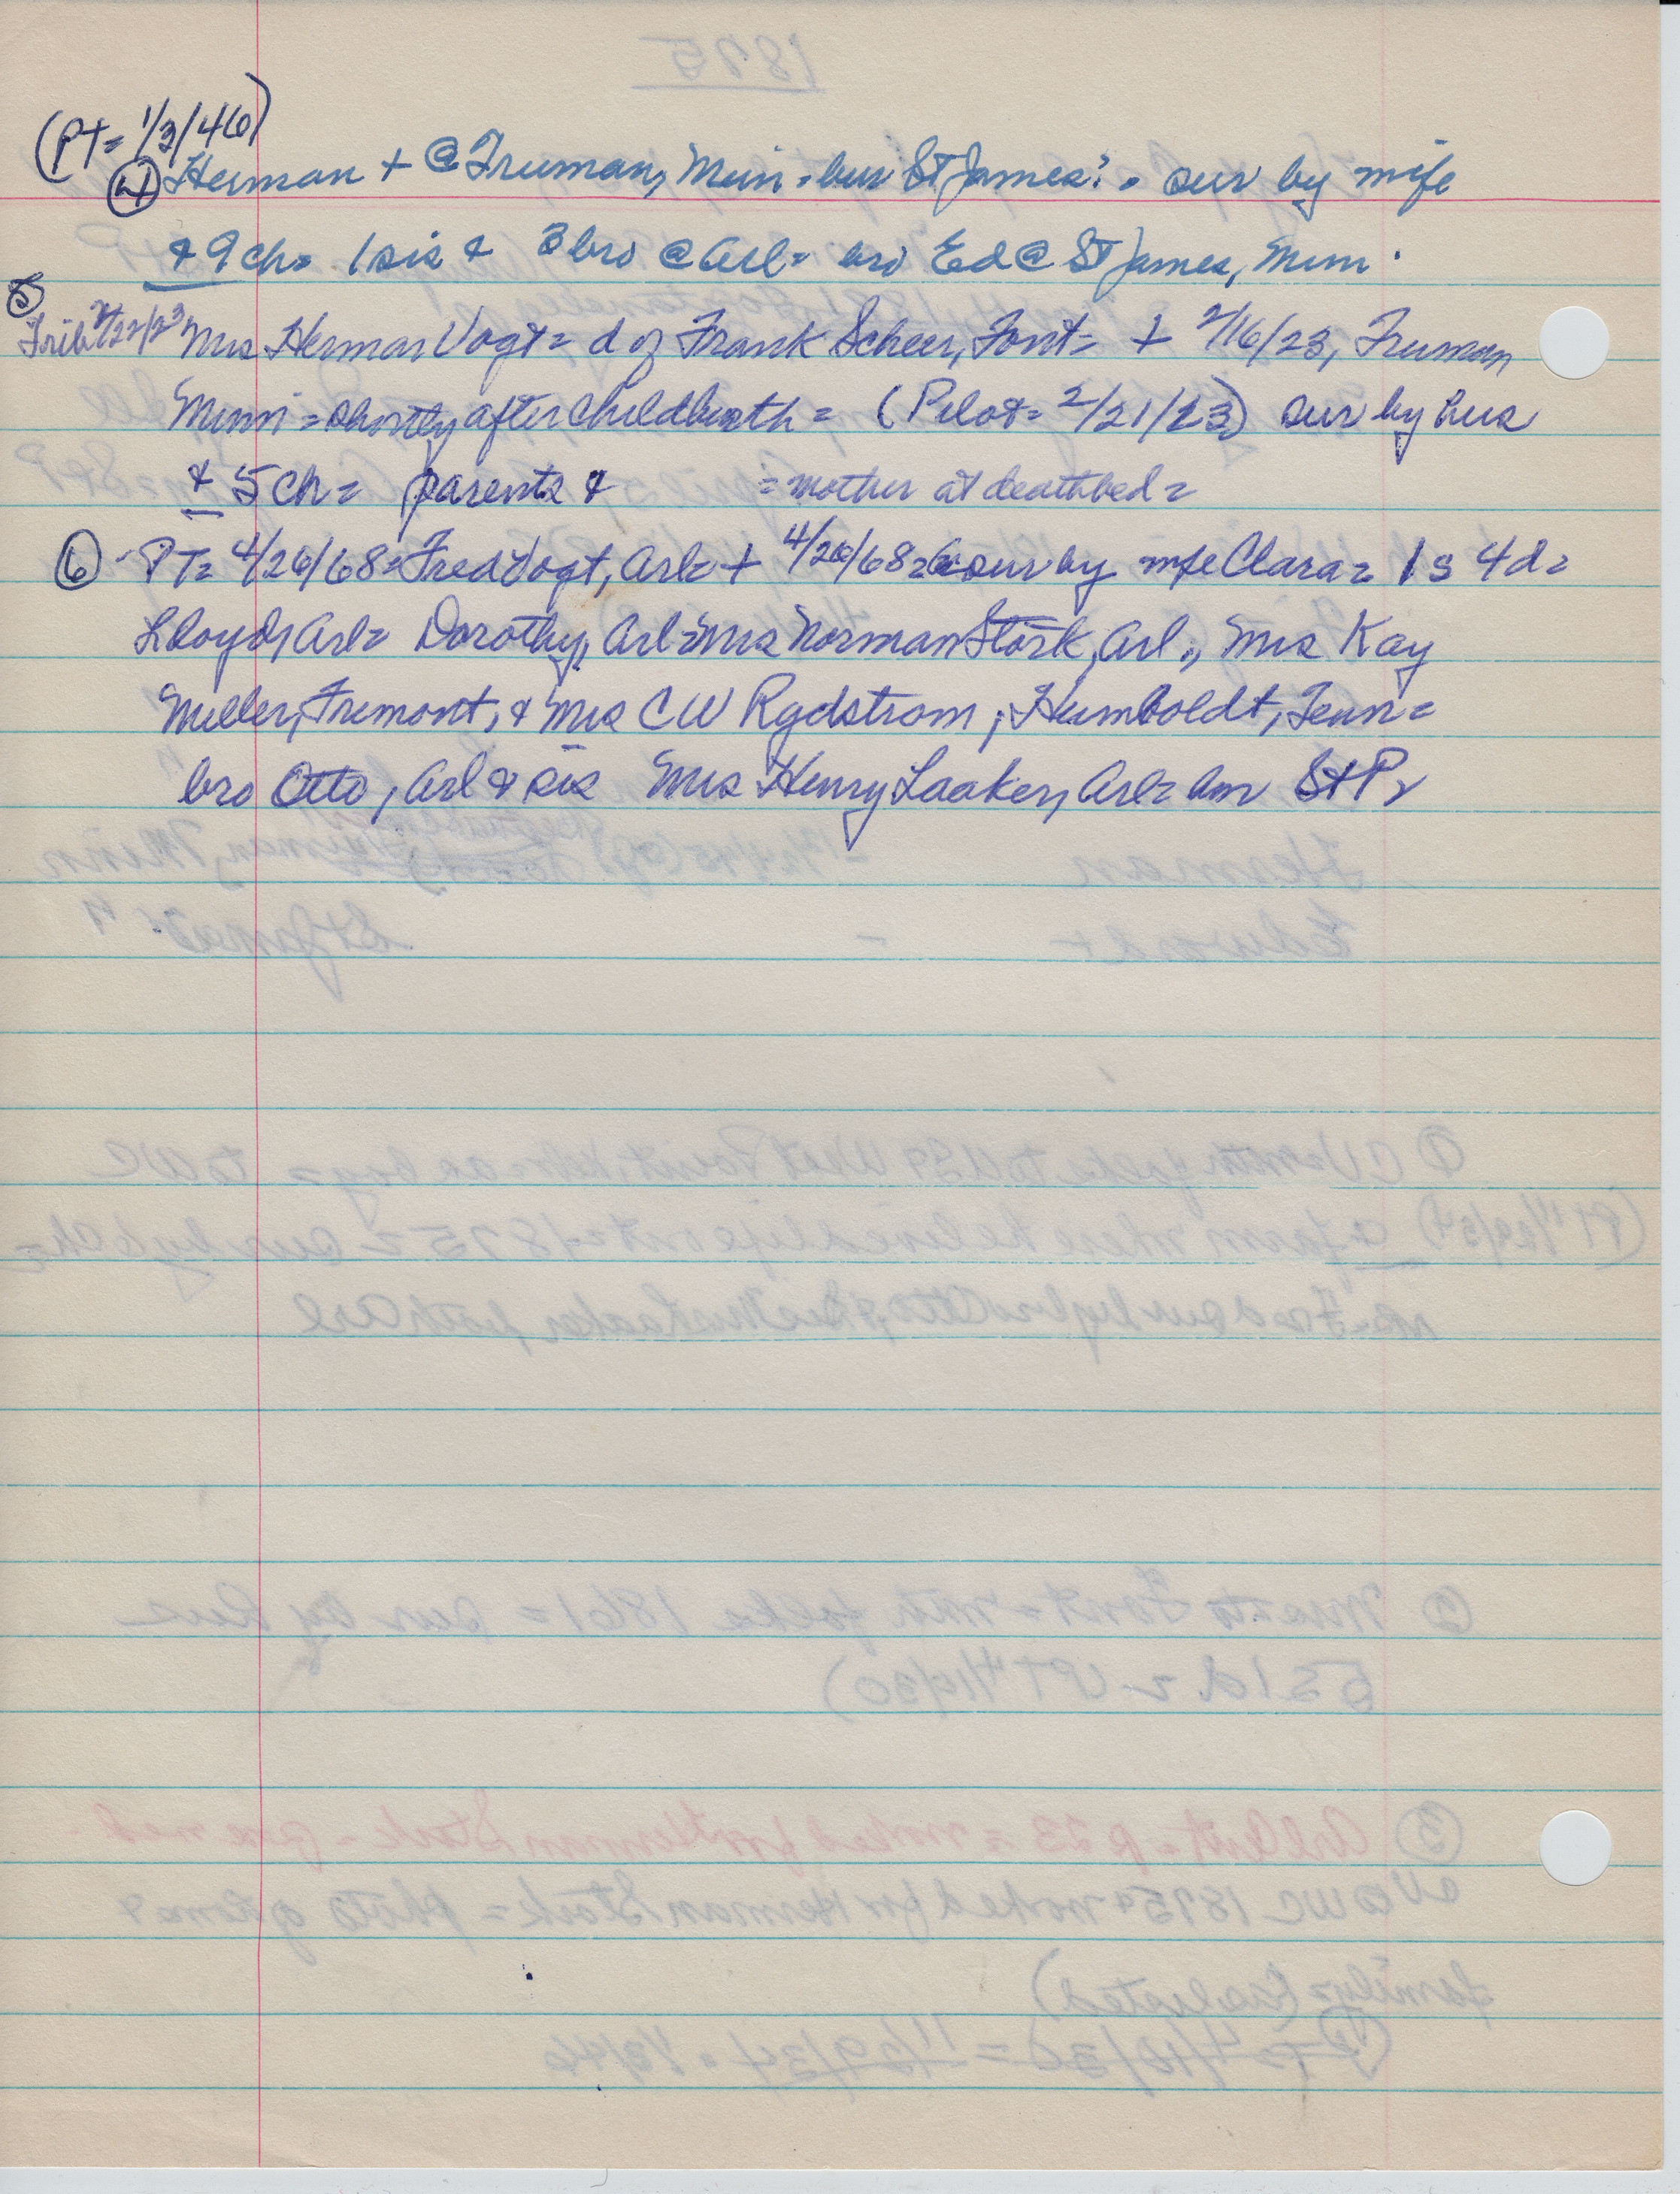 (PT= 1/3/46)
④ Herman + @ Truman, Minn = bur St James = sur by wife
& 9 ch = 1 sis & 3 bro @ Arl = bro Ed @ St James, Minn.
⑤ Trib 2/22/23 Mrs Herman Vogt = d of Frank Scheer, Font = + 2/16/23, Truman
Minn = shortly after childbirth = (Pilot = 2/21/23) sur by hus
& 5 ch = parents & = mother at deathbed =
⑥ PT= 4/26/68 = Fred Vogt, Arl = + 4/20/68 = sur by wife Clara = 1 s 4 d =
Lloyd, Arl = Dorothy, Arl = Mrs Norman Stork, Arl., Mrs Kay
Miller, Fremont, & Mrs C W Rydstrom, Humboldt, Tenn =
bro Otto, Arl & sis Mrs Henry Laaker, Arl = Am St P